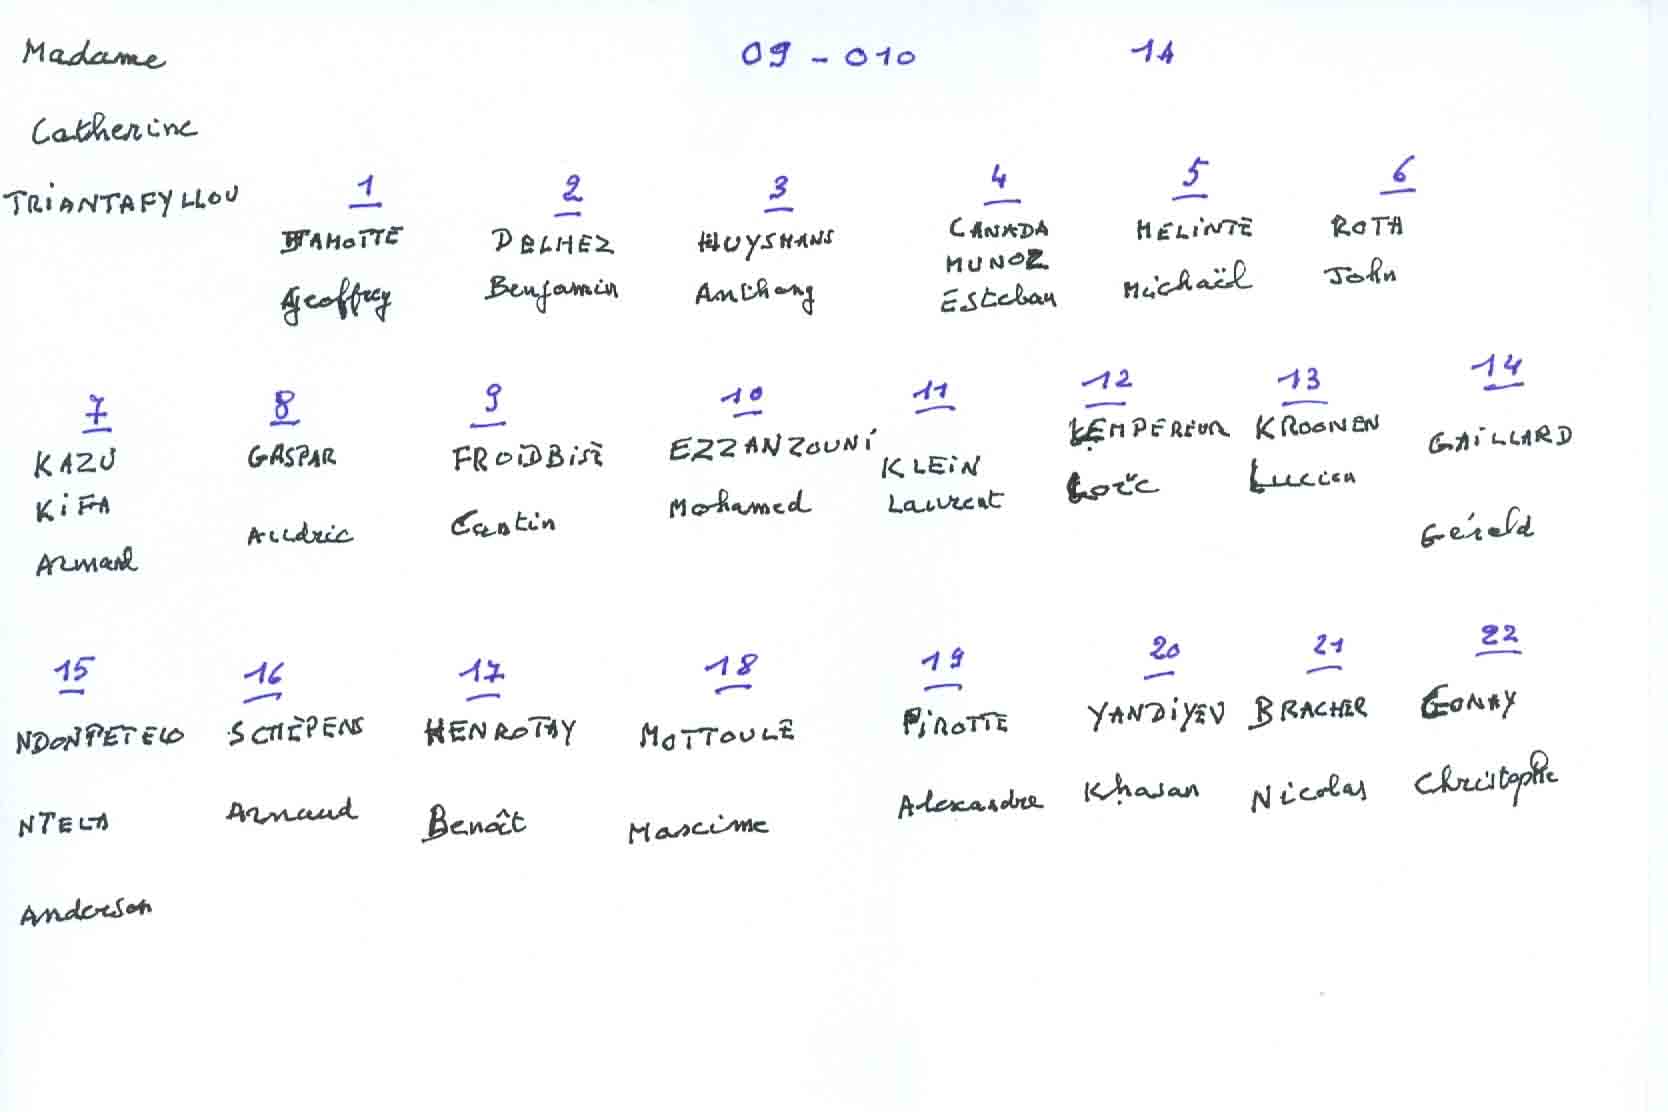 Madame
09 - 010 1A
Catherine
TRIANTAFYLLOU
1 2 3 4 5 6
JAMOTTE DELHEZ HUYSMANS CANADA MELINTE ROTH
MUNOZ
Geoffrey Benjamin Anthony Esteban Michaël John
7 8 9 10 11 12 13 14
KAZU GASPAR FROIDBISE EZZANZOUNI KLEIN LEMPEREUR KROONEN GAILLARD
KIFA
Armand Mohamed Laurent Loïc Lucien Gérald
15 16 17 18 19 20 21 22
NDONPETELO SCHEPENS HENROTAY MOTTOULE PIROTTE YANDIYEV BRACHER GONAY
NTELA Arnaud Benoît Maxime Alexandre Khasan Nicolas Christophe
Anderson